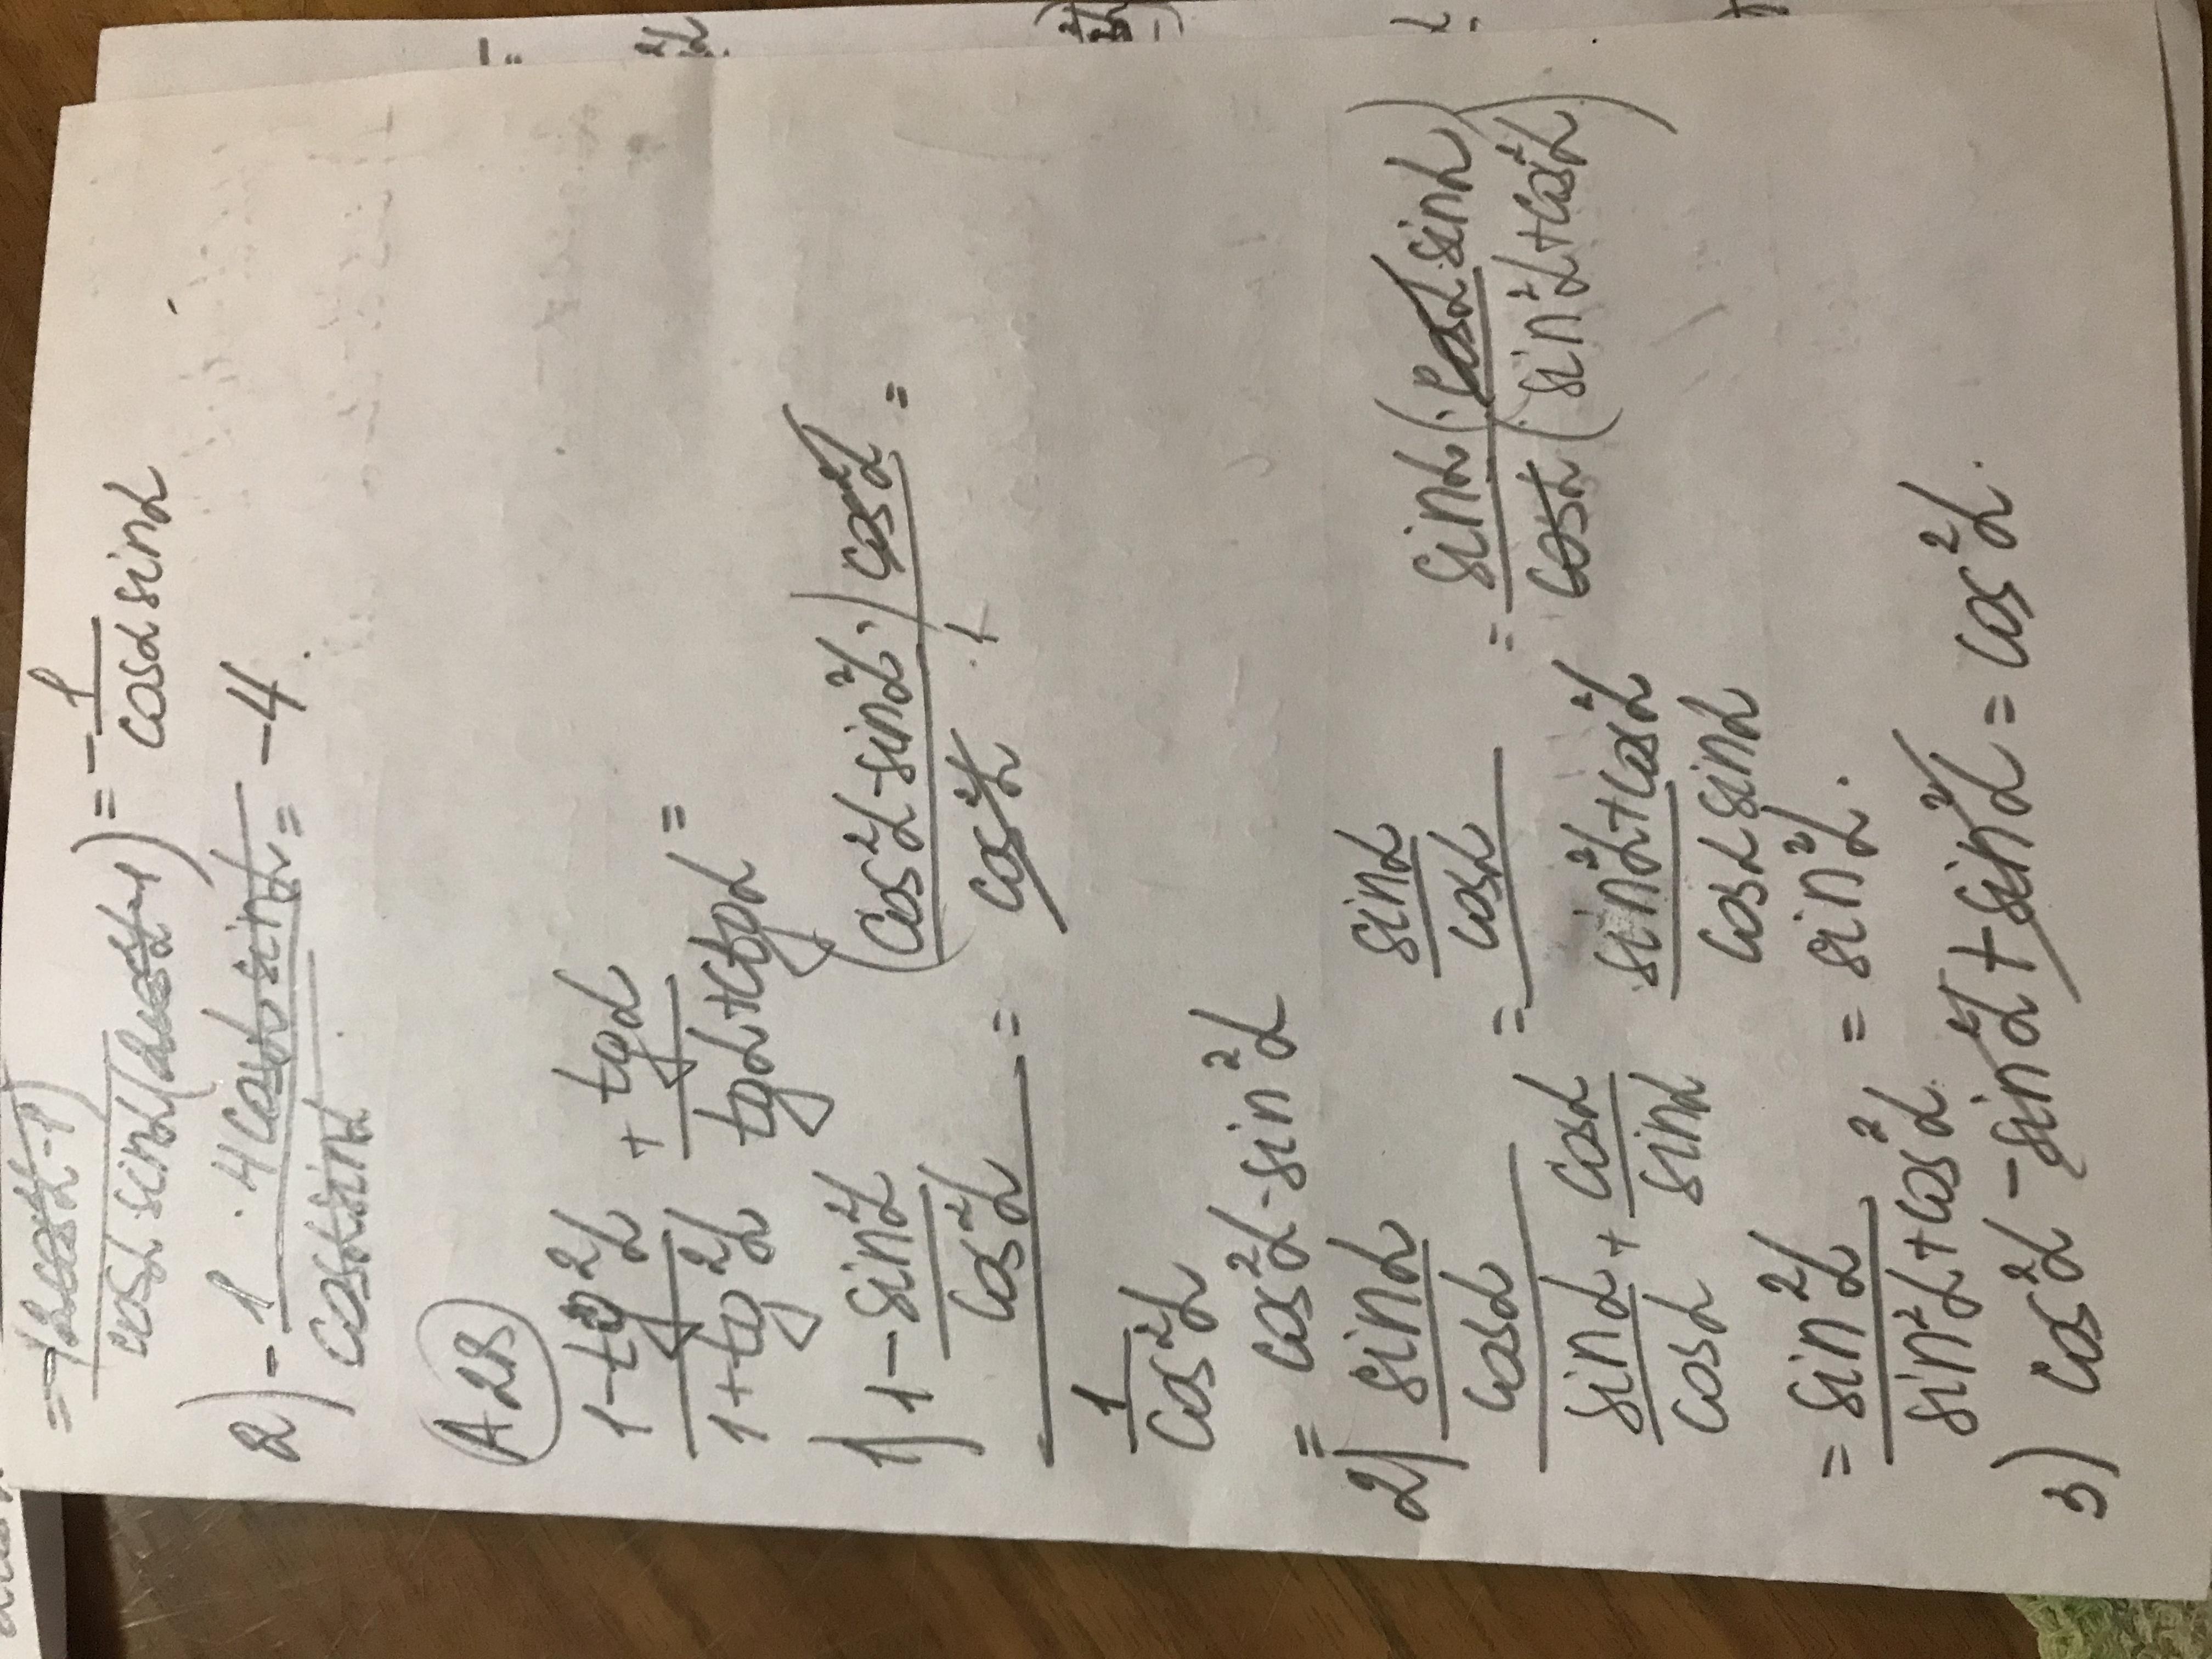 = -(2cos²α-1) / cosα·sinα(2cos²α-1) = -1/cosα sinα
2) -1·4cosα sinα / cosα sinα = -4.
A28
1-tg²α / 1+tg²α + tgα / tgα+ctgα =
1) 1-sin²α/cos²α / 1/cos²α = (cos²α-sin²α·)cos²α / cos²α·1 =
= cos²α-sin²α
2) sinα/cosα / sinα/cosα + cosα/sinα = sinα/cosα / sin²α+cos²α/cosα sinα = sinα(·cosα·sinα) / cosα(sin²α+cos²α)
= sin²α / sin²α+cos²α = sin²α.
3) cos²α-sin²α+sin²α = cos²α.